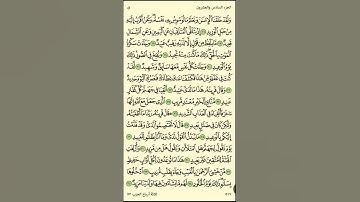 الجزء السادس والعشرون ق
وَلَقَدْ خَلَقْنَا الْإِنسَانَ وَنَعْلَمُ مَا تُوَسْوِسُ بِهِ نَفْسُهُ وَنَحْنُ أَقْرَبُ إِلَيْهِ
مِنْ حَبْلِ الْوَرِيدِ إِذْ يَتَلَقَّى الْمُتَلَقِّيَانِ عَنِ الْيَمِينِ وَعَنِ الشِّمَالِ
قَعِيدٌ مَّا يَلْفِظُ مِن قَوْلٍ إِلَّا لَدَيْهِ رَقِيبٌ عَتِيدٌ وَجَاءَتْ سَكْرَةُ
الْمَوْتِ بِالْحَقِّ ذَٰلِكَ مَا كُنتَ مِنْهُ تَحِيدُ وَنُفِخَ فِي الصُّورِ ذَٰلِكَ
يَوْمُ الْوَعِيدِ وَجَاءَتْ كُلُّ نَفْسٍ مَّعَهَا سَائِقٌ وَشَهِيدٌ لَّقَدْ كُنتَ
فِي غَفْلَةٍ مِّنْ هَٰذَا فَكَشَفْنَا عَنكَ غِطَاءَكَ فَبَصَرُكَ الْيَوْمَ حَدِيدٌ
وَقَالَ قَرِينُهُ هَٰذَا مَا لَدَيَّ عَتِيدٌ أَلْقِيَا فِي جَهَنَّمَ كُلَّ كَفَّارٍ
عَنِيدٍ مَّنَّاعٍ لِّلْخَيْرِ مُعْتَدٍ مُّرِيبٍ الَّذِي جَعَلَ مَعَ اللَّهِ إِلَٰهًا
آخَرَ فَأَلْقِيَاهُ فِي الْعَذَابِ الشَّدِيدِ قَالَ قَرِينُهُ رَبَّنَا مَا أَطْغَيْتُهُ
وَلَٰكِن كَانَ فِي ضَلَالٍ بَعِيدٍ قَالَ لَا تَخْتَصِمُوا لَدَيَّ وَقَدْ قَدَّمْتُ
إِلَيْكُم بِالْوَعِيدِ مَا يُبَدَّلُ الْقَوْلُ لَدَيَّ وَمَا أَنَا بِظَلَّامٍ لِّلْعَبِيدِ
يَوْمَ نَقُولُ لِجَهَنَّمَ هَلِ امْتَلَأْتِ وَتَقُولُ هَلْ مِن مَّزِيدٍ وَأُزْلِفَتِ الْجَنَّةُ
لِلْمُتَّقِينَ غَيْرَ بَعِيدٍ هَٰذَا مَا تُوعَدُونَ لِكُلِّ أَوَّابٍ حَفِيظٍ
مَّنْ خَشِيَ الرَّحْمَٰنَ بِالْغَيْبِ وَجَاءَ بِقَلْبٍ مُّنِيبٍ ادْخُلُوهَا
بِسَلَامٍ ذَٰلِكَ يَوْمُ الْخُلُودِ لَهُم مَّا يَشَاءُونَ فِيهَا وَلَدَيْنَا مَزِيدٌ
ثلاثة أرباع الحزب ٥١٩